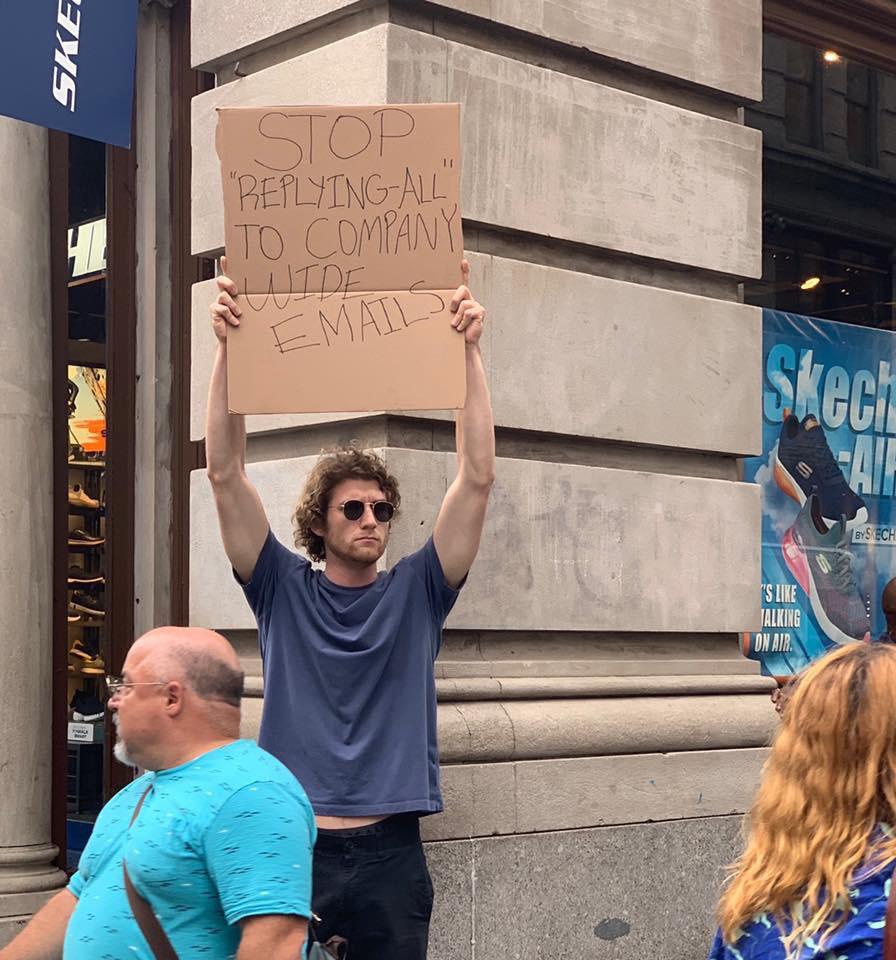 SKE
STOP
"REPLYING-ALL"
TO COMPANY
WIDE
EMAILS
Skech
-AIR
BY SKECH
'S LIKE
ALKING
ON AIR.